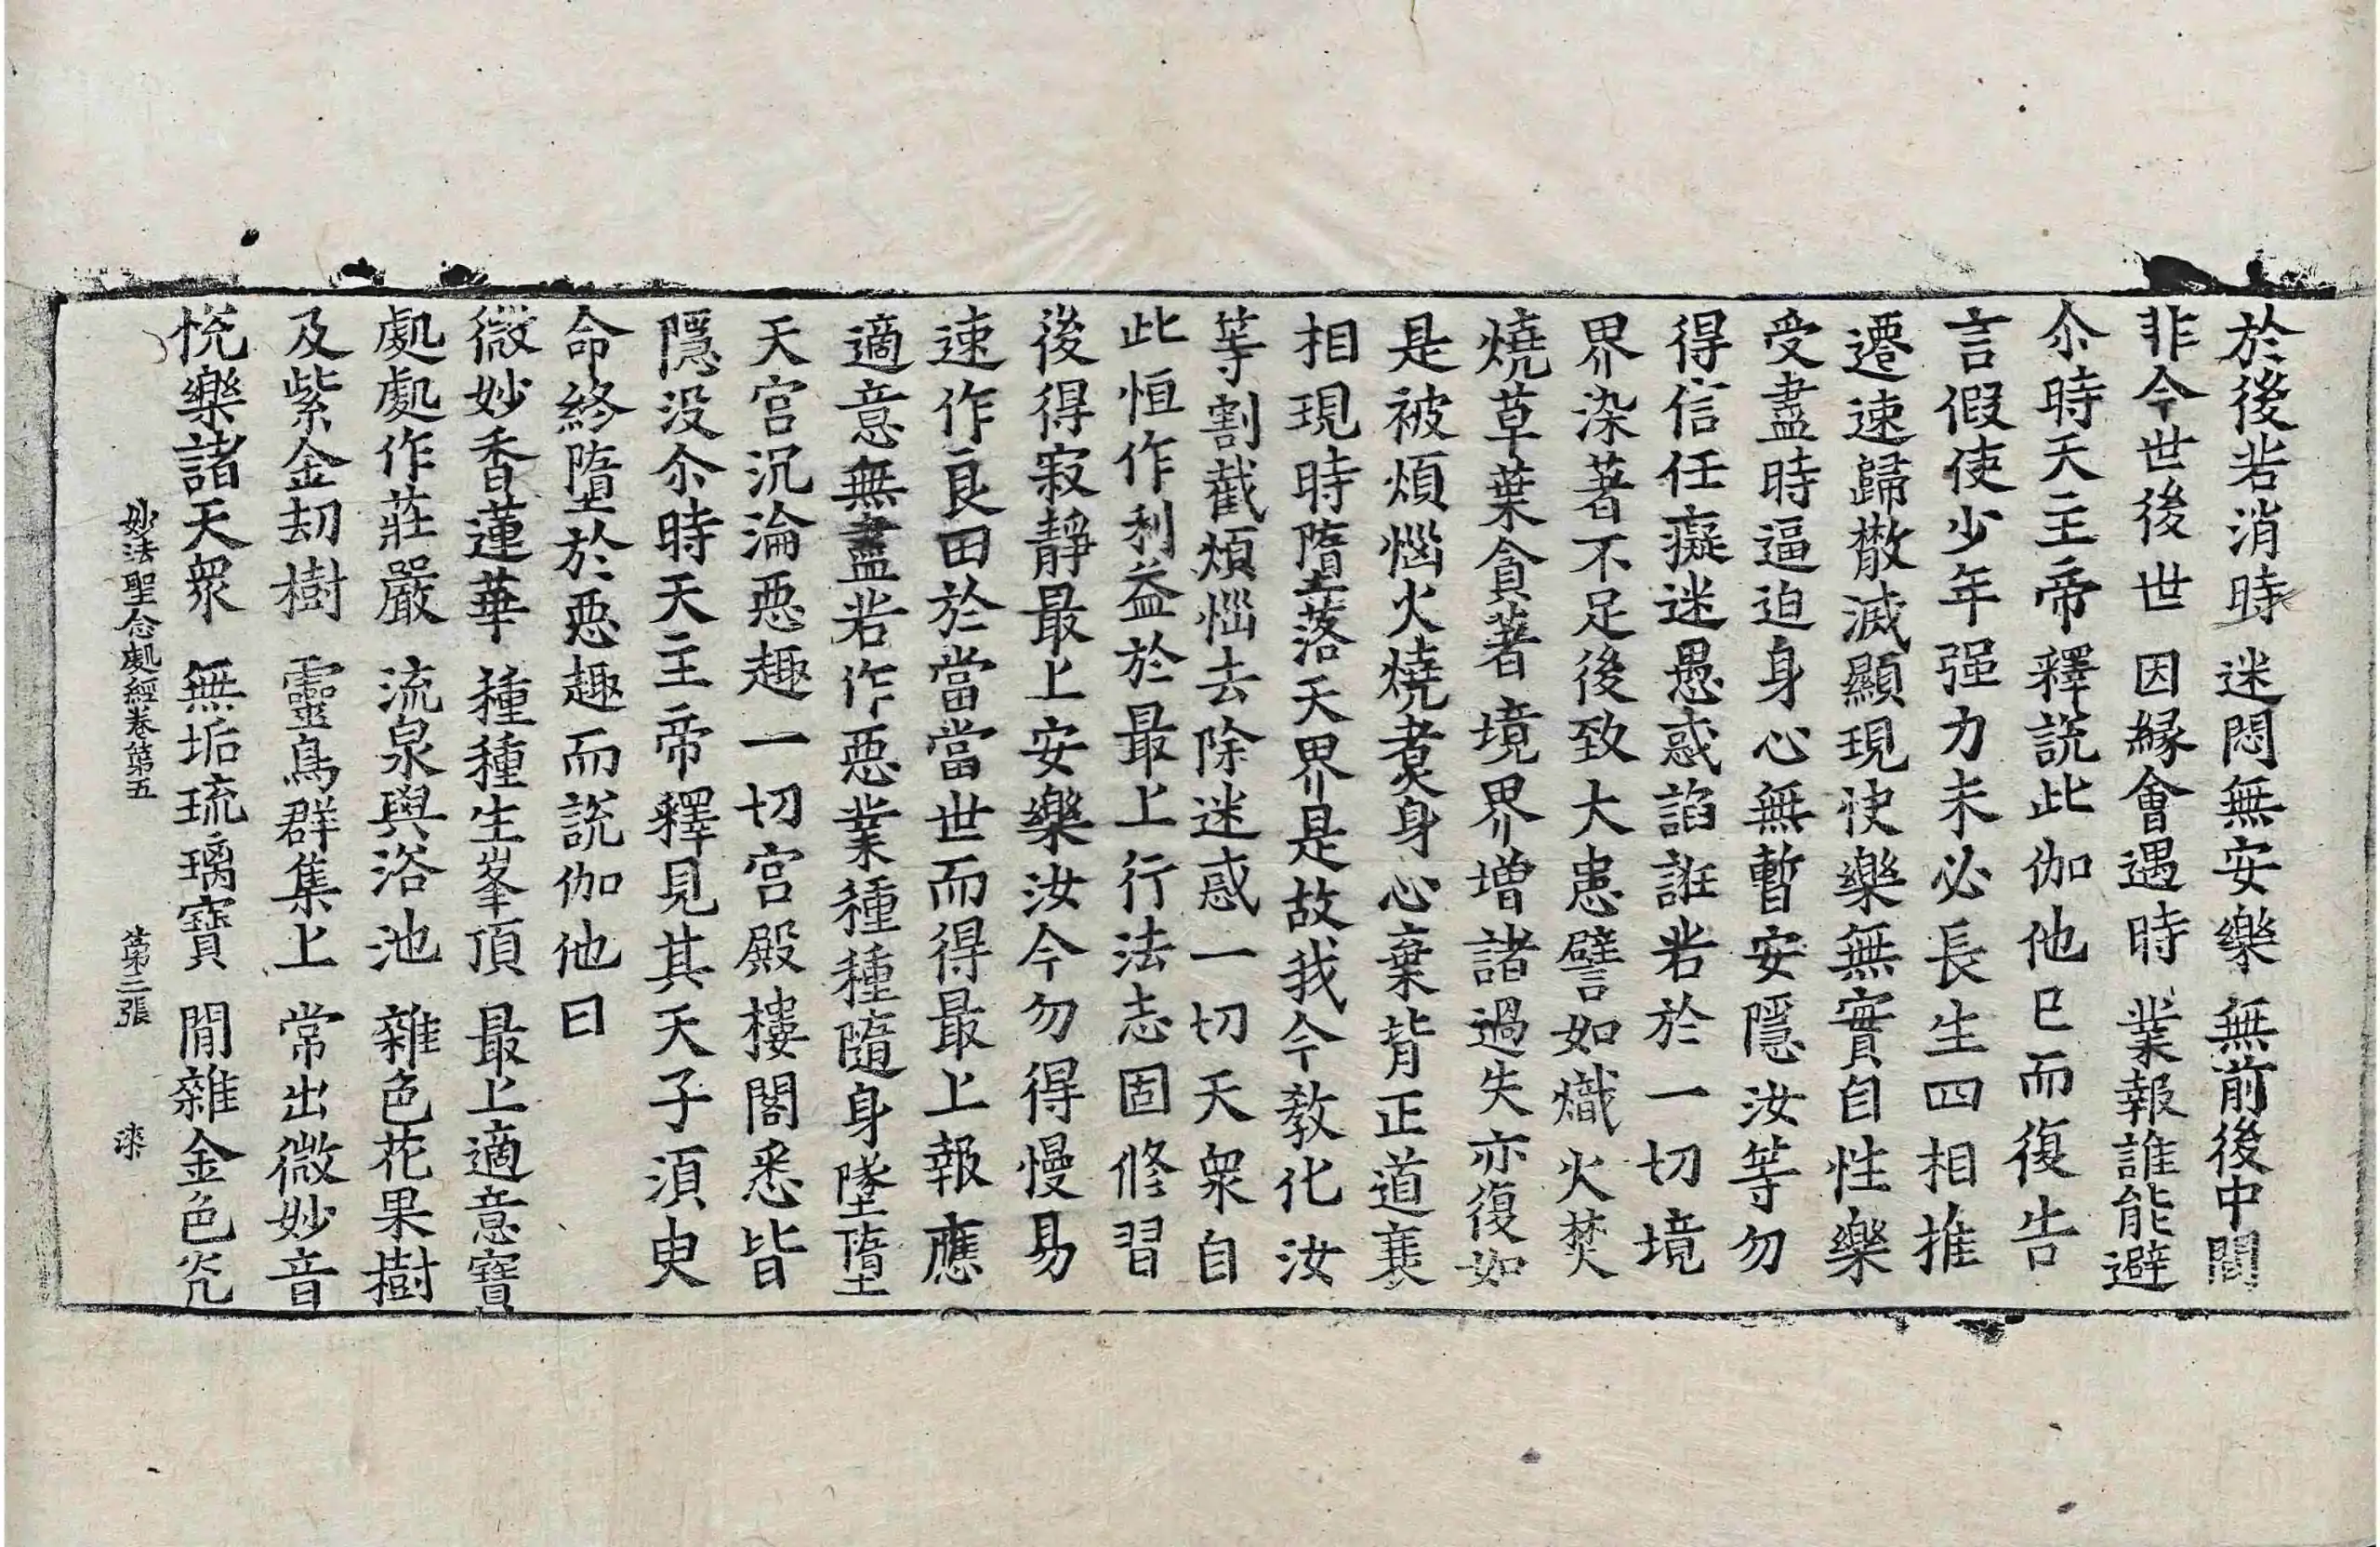 於後若消時　迷悶無安樂　無前後中間
非今世後世　因縁會遇時　業報誰能避
尒時天主帝釋說此伽他已而復告
言假使少年强力未必長生四相推
遷速歸散滅顯現快樂無實自性樂
受盡時逼迫身心無暫安隱汝等勿
得信任癡迷愚惑諂誑若於一切境
界染著不足後致大患譬如熾火焚
燒草葉貪著境界增諸過失亦復如
是被煩惱火燒煑身心棄背正道衰
相現時墮落天界是故我今教化汝
等割截煩惱去除迷惑一切天衆自
此恒作利益於最上行法志固修習
後得寂靜最上安樂汝今勿得慢易
速作良田於當當世而得最上報應
適意無盡若作惡業種種隨身墜墮
天宮沉淪惡趣一切宮殿樓閣悉皆
隱没尒時天主帝釋見其天子湏㬰
命終墮於惡趣而說伽他曰
微妙香蓮華　種種生峯頂　最上適意寶
處處作莊嚴　流泉與浴池　雜色花果樹
及紫金刧樹　靈鳥群集上　常出微妙音
悅樂諸天衆　無垢琉璃寶　間雜金色光
妙法聖念處經卷第五　第三張　漆